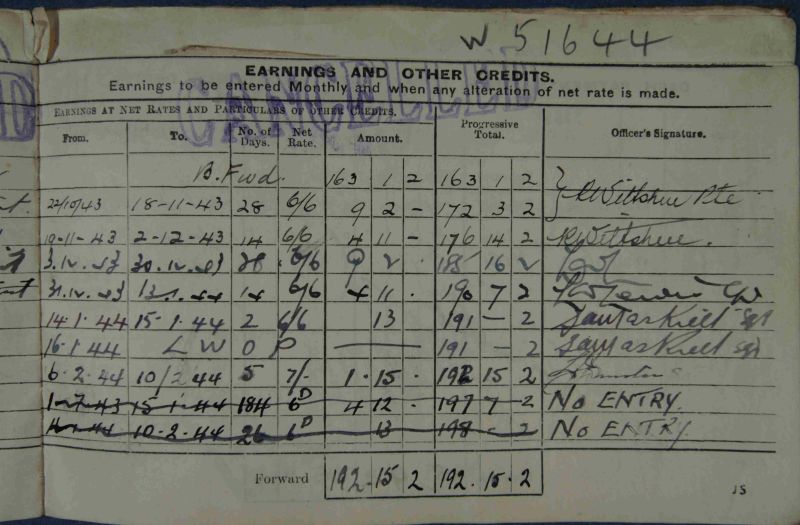 W 51644
CANCELLED
EARNINGS AND OTHER CREDITS.
Earnings to be entered Monthly and when any alteration of net rate is made.
EARNINGS AT NET RATES AND PARTICULARS OF OTHER CREDITS.
From. To. No. of Days. Net Rate. Amount. Progressive Total. Officer's Signature.
B. Fwd. 163 1 2 163 1 2
22/10/43 18-11-43 28 6/6 9 2 - 172 3 2 RWiltshire Pte
19-11-43 2-12-43 14 6/6 4 11 - 176 14 2 RWiltshire.
3.12.43 30.12.43 28 6/6 9 2 . 185 16 2
31.12.43 13.1.44 14 6/6 4 11 . 190 7 2
14.1.44 15.1.44 2 6/6 13 191 - 2
16.1.44 L W O P 191 - 2
6.2.44 10/2 44 5 7/- 1.15. 192 15 2
1-7-43 15-1-44 184 6D 4 12 - 197 7 - 2 NO ENTRY.
10-2-44 26 6D 13 198 - 2 NO ENTRY.
Forward 192.15 2 192.15.2
15